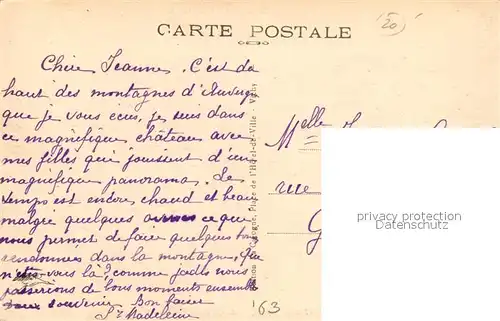 CARTE POSTALE
(20)
Chère Jeanne. C'est du
haut des montagnes d'Auverg
que je vous écris, je suis dans
ce magnifique château avec
mes filles qui jouissent d'un
magnifique panorama. Le
temps est encore chaud et beau
malgré quelques ce que
nous permet de faire quelques bon
randonnées dans la montagne. Que
n'êtes-vous là? comme jadis nous
passerions de bons moments ensemble
souvenir Bon faire
St Madeleine
Place de l'Hôtel-de-Ville
Melle
rue
G
privacy protection
Datenschutz
63